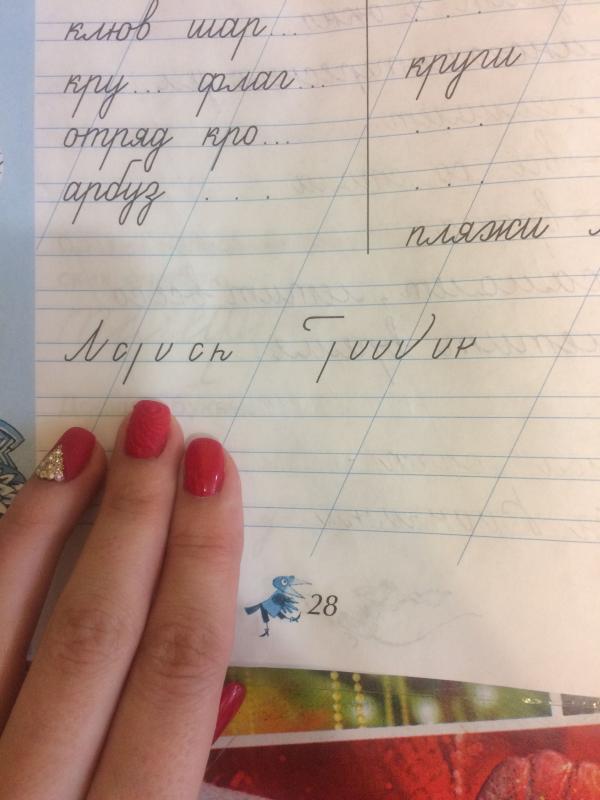 клюв шар...
кру... флаг...
отряд кро...
арбуз ....
. . .
круги
. . .
. . .
пляжи
28